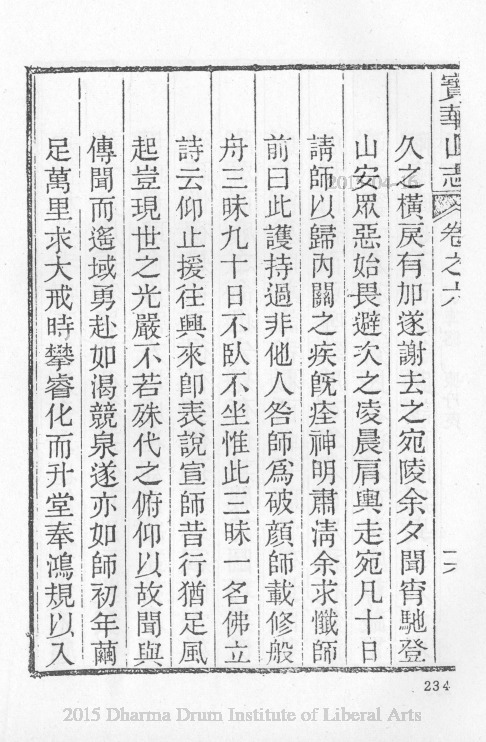 寶華山志 卷之六 十六
久之橫戾有加遂謝去之宛陵余夕聞宵馳登
山安眾惡始畏避次之凌晨肩輿走宛凡十日
請師以歸內關之疾旣痊神明肅清余求懺師
前曰此護持過非他人咎師為破顏師載修般
舟三昧九十日不臥不坐惟此三昧一名佛立
詩云仰止援往興來卽表說宣師昔行猶足風
起豈現世之光嚴不若殊代之俯仰以故聞與
傳聞而遙域勇赴如渴競泉遂亦如師初年繭
足萬里求大戒時攀睿化而升堂奉鴻規以入
234
2015 Dharma Drum Institute of Liberal Arts